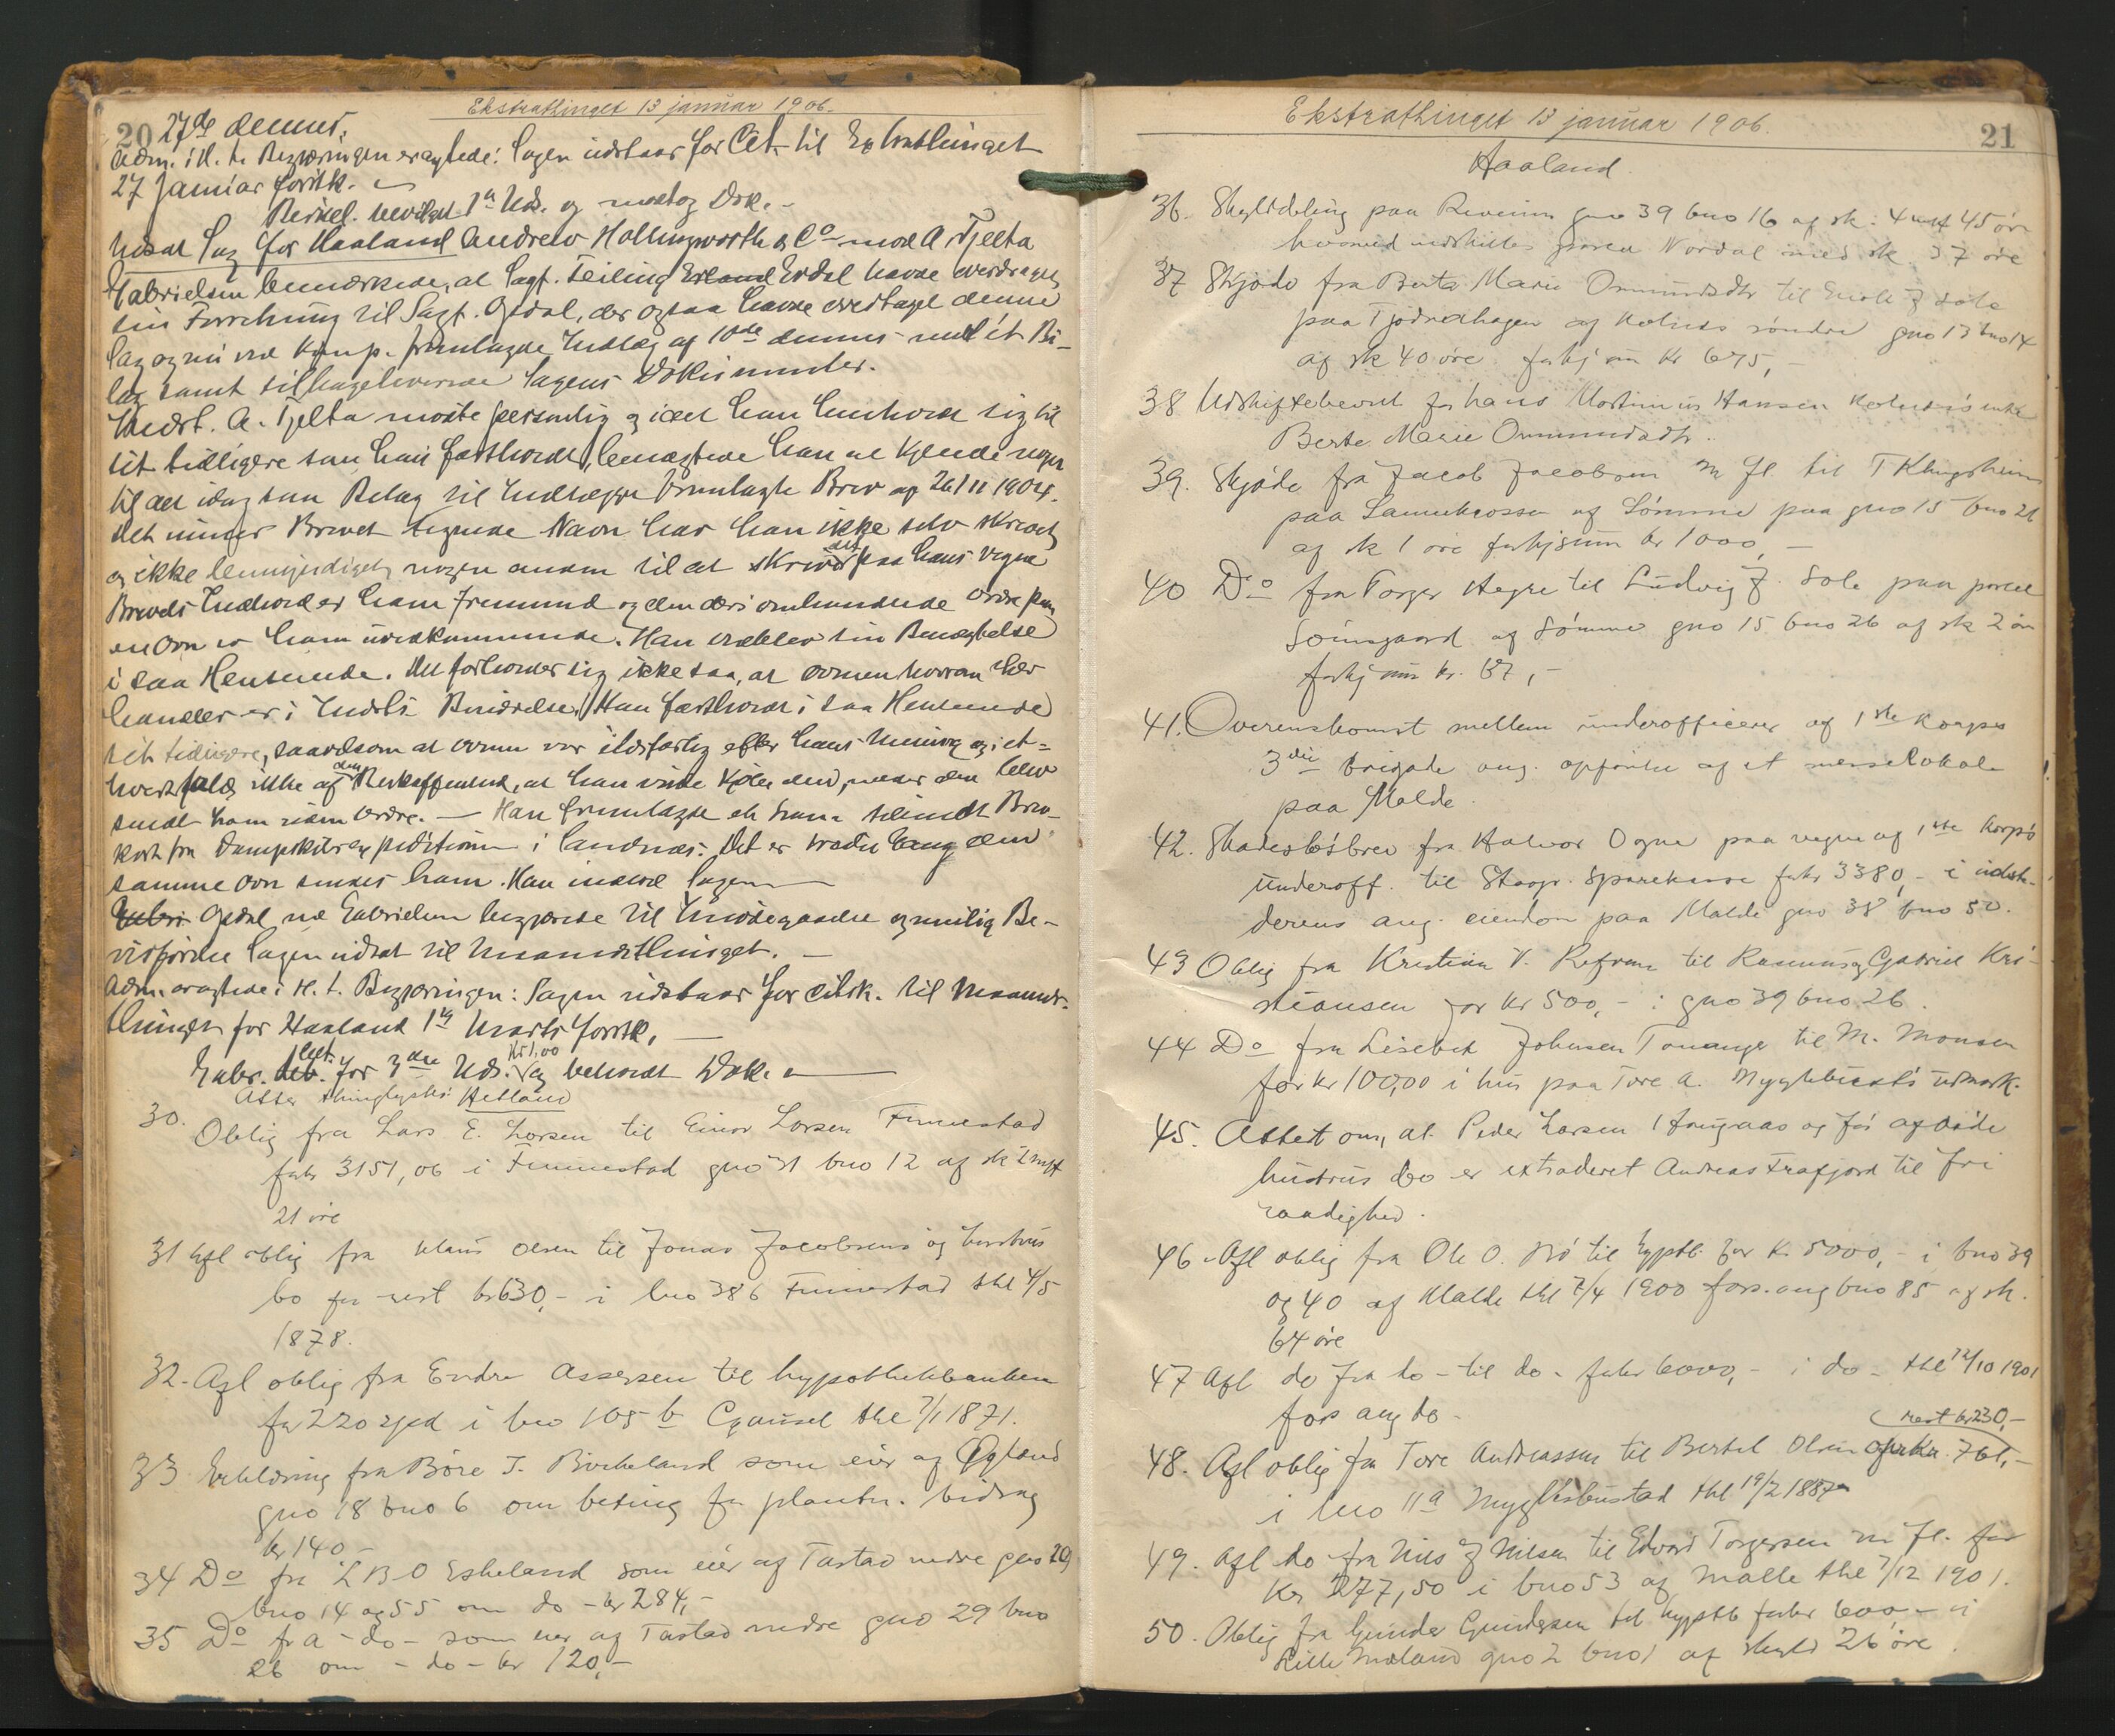 Ekstrathinget 13 januar 1906.
20 27de dennes.
Adm. i H. t. Begjæringen eragtede: Sagen udstaar for Cit. til Extrathinget
27 Januar førstk.
Berikel. bevilget 1n Uds. og modtog Dok. -
Udsat Sag for Haaland Andrew Hollingworth & Co mod A. Tjelta
Gabrielsen bemærkede, at Sagf. Erdal havde overdraget
sin Forretning til Sagf. Opdal, der ogsaa havde overtaget denne
Sag og nu ved Komp. fremlagde Indlæg af 10de dennes med ét Bi-
lag samt tilbageleverede Sagens Dokumenter.
Indst. A. Tjelta mødte personlig og idet han henholdt sig til
sit tidligere som han fastholdt, benægtede han at kjende noget
til det idag som Bilag til Indlægget fremlagte Brev af 26/11 1904.
Det under Brevet tegnede Navn har han ikke selv skrevet
og ikke bemyndiget nogen anden til at skrive det paa hans Vegne
Brevets Indhold er ham fremmed og den deri omhandlede Ordre paa
en Ovn er ham uvedkommende. Han
i saa Henseende. Det forholder sig ikke saa, at ovnen hvorom her
handles er i Indst's Besiddelse. Han fastholdt i saa Henseende
sit tidligere, saavelsom at ovnen var ildsfarlig efter hans Mening og i et-
hvert fald ikke af den Beskaffenhed, at han vilde kjøbe den, medens den blev
sendt ham uden Ordre. — Han fremlagde et ham tilsendt Brev-
kort fra Dampskibsexpeditionen i Sandnes. Det er
samme Ovn sendes ham. Han indlod Sagen —
Opdal ved Gabrielsen begjærede til Imødegaaelse og mulig Be-
visførelse Sagen udsat til Maanedsthinget. —
Adm. eragtede i H. t. Begjæringen: Sagen udstaar for citsk. til Maaneds-
thinget for Haaland 1ste Marts førstk. —
Gabr. bet. for 3die Uds. Kr 1,00 og beholdt Dok. —
Atter thinglystes: Hetland
30. Oblig fra Lars E. Larsen til Einar Larsen Finnestad
for kr 3151,06 i Finnestad gno 31 bno 12 af sk 2 mrk
21 øre
31 Afl oblig fra Klaus Olsen til Jonas Jacobsens og hustrus
bo for rest kr 630,- i lno 386 Finnestad thl 4/5
1878.
32. Afl oblig fra Endre Assersen til hypothekbanken
for 220 spd i lno 105 b Gausel thl 7/1 1871.
33. Erklæring fra Børe T. Birkeland som eier af Øgland
gno 18 bno 6 om beting for plantn. bidrag
kr 140 -
34 Do fra L B O Eskeland som eier af Tastad nedre gno 29
bno 14 og 55 om do - kr 284,-
35 Do fra - do - som eier af Tastad nedre gno 29 bno
26 om - do - kr 120,-
Ekstrathinget 13 januar 1906.
21
Haaland.
36. Skylddeling paa Reveim gno 39 bno 16 af sk: 4 mk 45 øre
hvorved udskilles parcel Nordal med sk. 37 øre
37 Skjøde fra Berta Marie Ommundsdtr til Enok J Sola
paa Tjødnedhagen af Kolnes søndre gno 13 bno 14
af sk 40 øre. for kjsum kr 675,-
38 Udskiftebevist for hans Martinius Hansen
Berte Marie Ommundsdtr.
39. Skjøde fra Jacob Jacobsen m fl til T Klungsheim
paa af Sømme paa gno 15 bno 21
af sk 1 øre for kjsum kr 1000,-
40 Do fra Torger Hegre til Ludvig J. Sola paa parcel
Soinsgaard af Sømme gno 15 bno 26 af sk 2 øre
for kjsum kr. 67,-
41. Overenskomst mellem underofficerer af 1ste korps
3die brigade ang. opførelse af et messelokale
paa Malde.
42. Skadesløsbrev fra Halvor Ogne paa vegne af 1ste korps
underoff. til Stavgr. Sparekasse for kr 3380,- i indsk-
derens ang. eiendom paa Malde gno 38 bno 50.
43 Oblig fra Kristian V. Refsnes til Rasmus og Gabriel Kri-
stiansen for kr 500,- i gno 39 bno 26.
44 Do fra Lisebet Johnsen Tananger til M. Monsen
for kr 100,00 i hus paa Tore A. Myglebust's udmark.
45. Attest om, at Peder Larsen Haugaas og før afdøde
hustrus bo er extraderet Andreas Frafjord til fri
raadighed.
46. Afl oblig fra Ole O. Bø til hyptb. for kr 5000,- i bno 39
og 40 af Malde thl 7/4 1900 fors. ang bno 85 af sk.
64 øre
47 Afl do fra do - til do - for kr 6000,- i do - thl 12/10 1901
fors ang do -
48. Afl oblig fra Tore Andreassen til Bertel Olsen for kr. 761,- (rest kr 230,-
i lno 11a Myglebustad thl 19/2 1887
49. Afl do fra Nils J Nilsen til Edvard Torgersen m fl. for
kr 277,50 i bno 53 af Malle thl 7/12 1901.
50. Oblig fra Gunder Gundersen til hyptb for kr 600,- i
Lille Meland gno 2 bno 1 af skyld 26 øre.